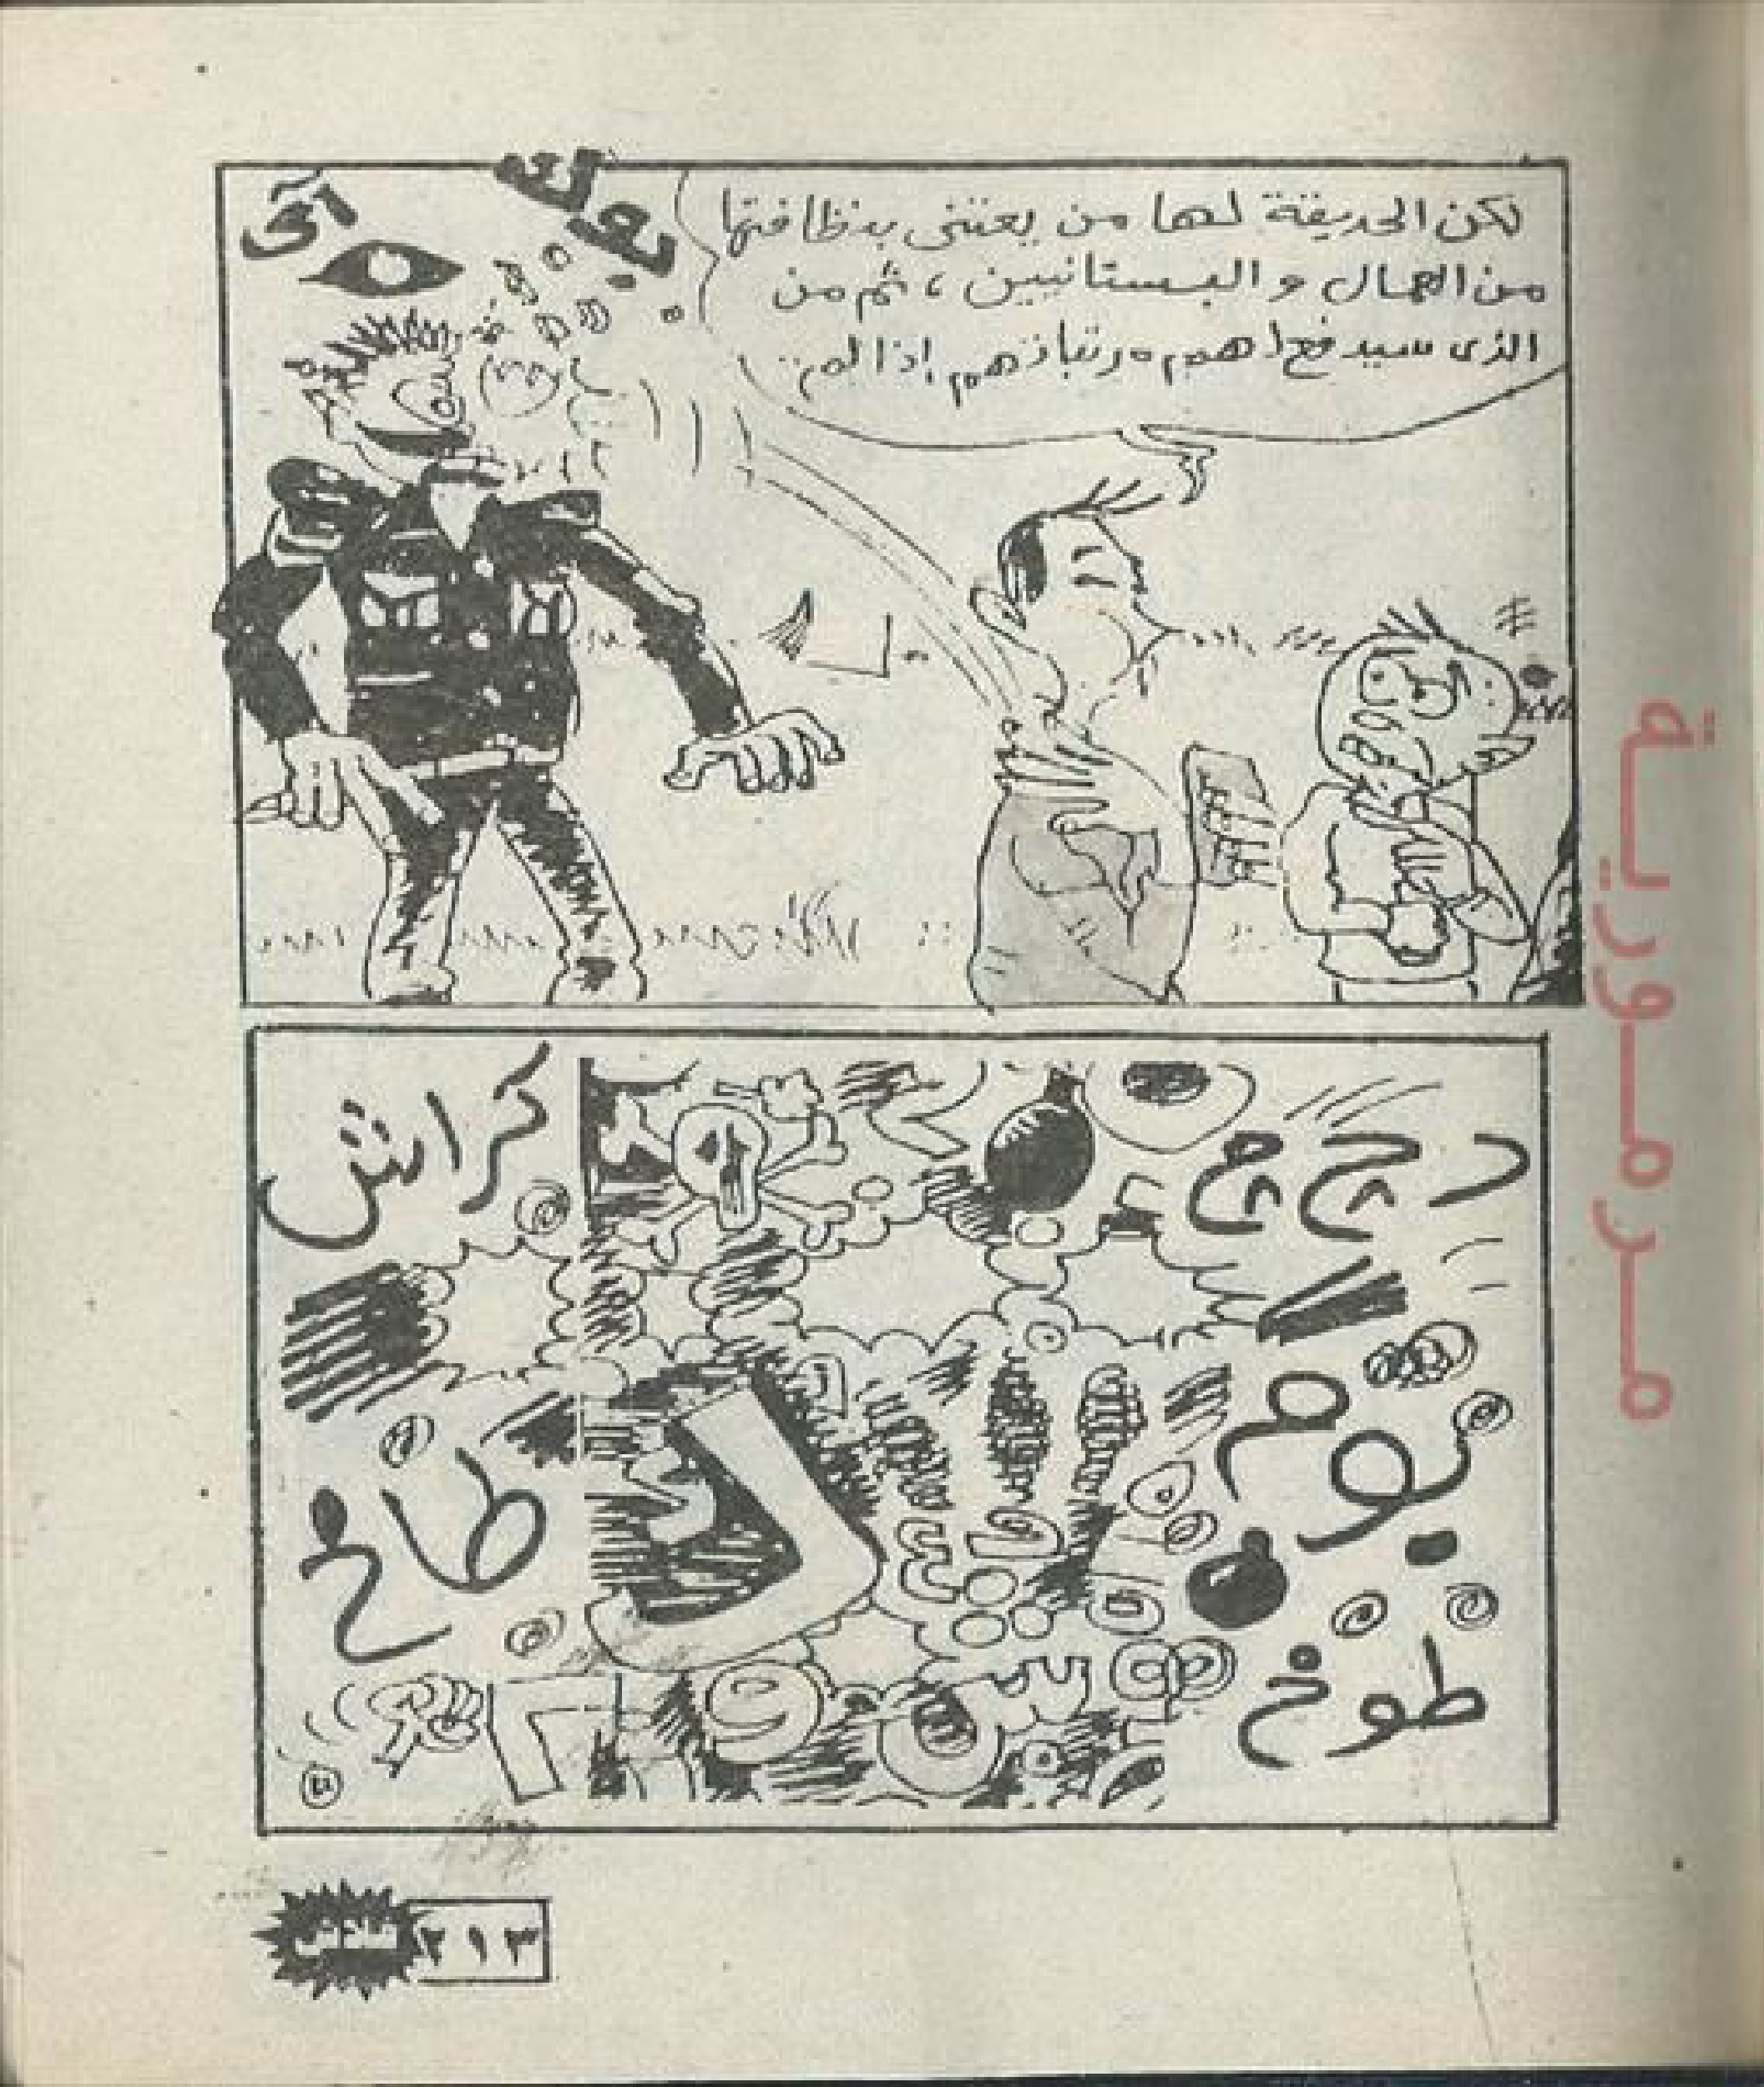 لكن الحديقة لها من يعتنى بنظافتها
من العمال و البستانيين ، ثم من
الذى سيدفع لهم مرتباتهم إذا لم..
آى
كراش
بوم
طاخ
طوخ
٣١٣
مرمورية